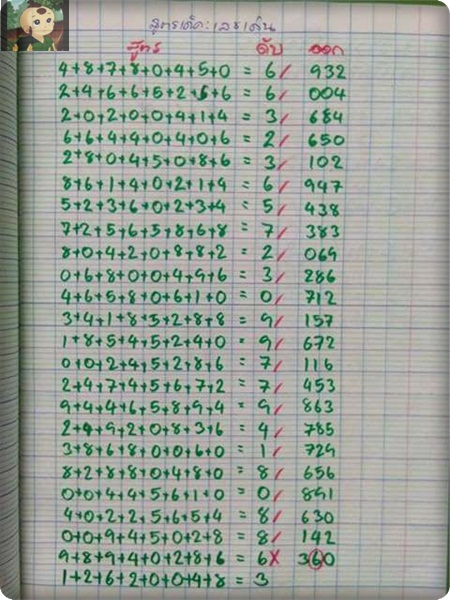 สูตรเด็ด:เลขเด่น
สูตร ดับ ออก
4+8+7+8+0+4+5+0 = 6/ 932
2+4+6+6+5+2+5+6 = 6/ 004
2+0+2+0+0+4+1+4 = 3/ 684
6+6+4+4+0+4+0+6 = 2/ 650
2+8+0+4+5+0+8+6 = 3/ 102
8+6+1+4+0+2+1+4 = 6/ 947
5+2+3+6+0+2+3+4 = 5/ 438
7+2+5+6+5+8+6+8 = 7/ 383
8+0+4+2+0+8+8+2 = 2/ 069
0+6+8+0+0+4+9+6 = 3/ 286
4+6+5+8+0+6+1+0 = 0/ 712
3+4+1+8+5+2+8+8 = 9/ 157
1+8+5+4+5+2+4+0 = 9/ 672
0+0+2+4+5+2+8+6 = 7/ 116
2+4+7+4+5+6+7+2 = 7/ 453
9+4+4+6+5+8+9+4 = 9/ 863
2+4+9+2+0+8+3+6 = 4/ 785
3+8+6+8+0+0+6+0 = 1/ 729
8+2+8+8+0+4+8+0 = 8/ 656
0+0+4+4+5+6+1+0 = 0/ 891
4+0+2+2+5+6+5+4 = 8/ 630
0+0+9+4+5+0+2+8 = 8/ 142
9+8+9+4+0+2+8+6 = 6X 360
1+2+6+2+0+0+4+8 = 3